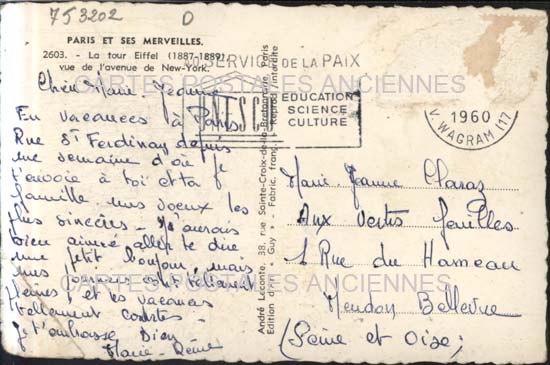 753202 D
PARIS ET SES MERVEILLES.
2603. - La tour Eiffel (1887-1889)
vue de l'avenue de New-York.
AU SERVICE DE LA PAIX
UNESCO
EDUCATION
SCIENCE
CULTURE
1960
V. WAGRAM (17
CARTES POSTALES ANCIENNES
Chère Marie-Jeanne
En vacances à Paris
Rue St Ferdinand depuis
une semaine d'où je
t'envoie à toi et ta
famille mes voeux les
plus sincères - J'aurais
bien aimé aller te dire
un petit bonjour, mais
mes sont tellement
et les vacances
tellement courtes
Je t'embrasse bien
Marie-Reine
André Leconte, 38, rue Sainte-Croix-de-la-Bretonnerie, Paris
Edition d'Art " Guy " - Fabric. franç. - Reprod. interdite
Marie-Jeanne
Aux Vertes feuilles
Rue du Hameau
Meudon Bellevue
(Seine et Oise)
CARTES POSTALES ANCIENNES